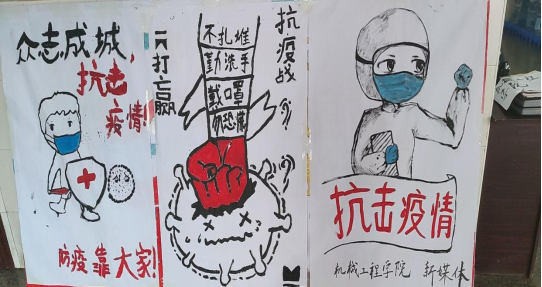 众志成城,
抗击
疫情!
防疫靠大家!
打赢
抗疫战
不扎堆
勤洗手
戴口罩
勿恐慌
抗击疫情
机械工程学院 新媒体